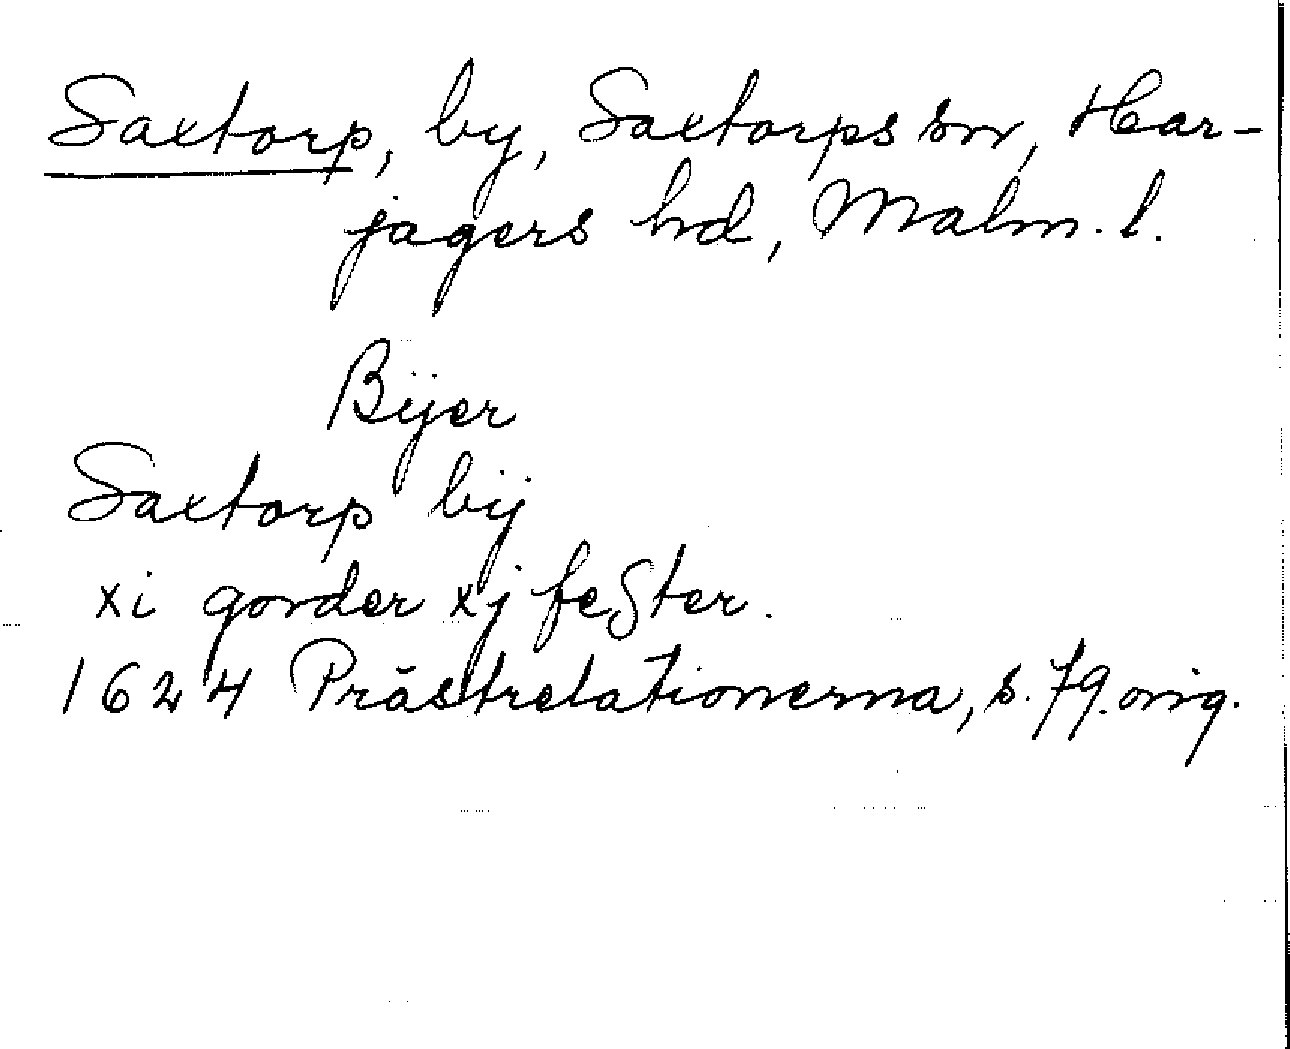 Saxtorp, by, Saxtorps sn, Har-
jagers hd, Malm. l.
Bÿer
Saxtorp bÿ
xi gorder xj fester.
1624 Prästrelationerna, s. 79. orig.